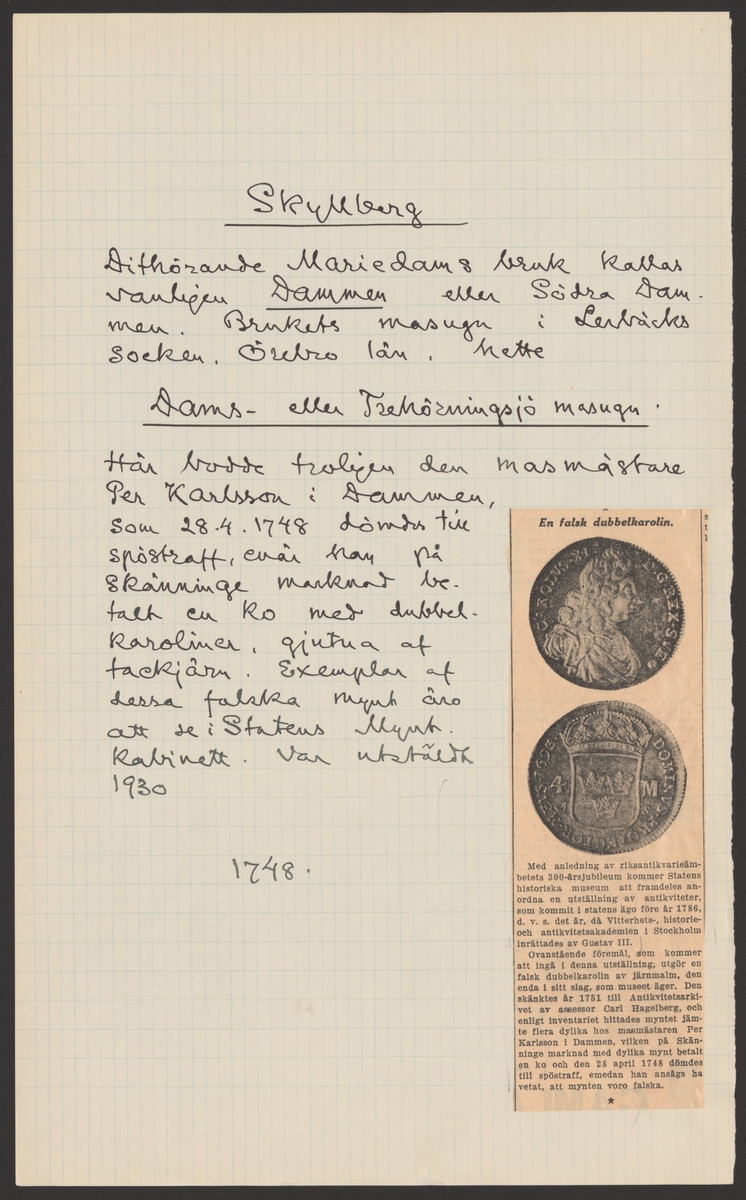 Skyllberg
Dithörande Mariedams bruk kallas
vanligen Dammen eller Södra Dam-
men. Brukets masugn i Lerbäcks
socken. Örebro län. hette
Dams- eller Trehörningsjö masugn.
Här bodde troligen den masmästare
Per Karlsson i Dammen,
som 28.4.1748 dömdes till
spöstraff, enär han på
Skänninge marknad be-
talt en ko med dubbel-
karoliner, gjutna af
tackjärn. Exemplar af
dessa falska mynt äro
att se i Statens Mynt.
kabinett. Var utstäldt
1930
1748.
En falsk dubbelkarolin.
CAROLVS·XI·D·G·REX·SVE
4 M
1693
DOMINVS
Med anledning av riksantikvarieäm-
betets 300-årsjubileum kommer Statens
historiska museum att framdeles an-
ordna en utställning av antikviteter,
som kommit i statens ägo före år 1786,
d. v. s. det år, då Vitterhets-, historie-
och antikvitetsakademien i Stockholm
inrättades av Gustav III.
Ovanstående föremål, som kommer
att ingå i denna utställning, utgör en
falsk dubbelkarolin av järnmalm, den
enda i sitt slag, som museet äger. Den
skänktes år 1751 till Antikvitetsarki-
vet av assessor Carl Hagelberg, och
enligt inventariet hittades myntet jäm-
te flera dylika hos masmästaren Per
Karlsson i Dammen, vilken på Skän-
ninge marknad med dylika mynt betalt
en ko och den 28 april 1748 dömdes
till spöstraff, emedan han ansågs ha
vetat, att mynten voro falska.
*